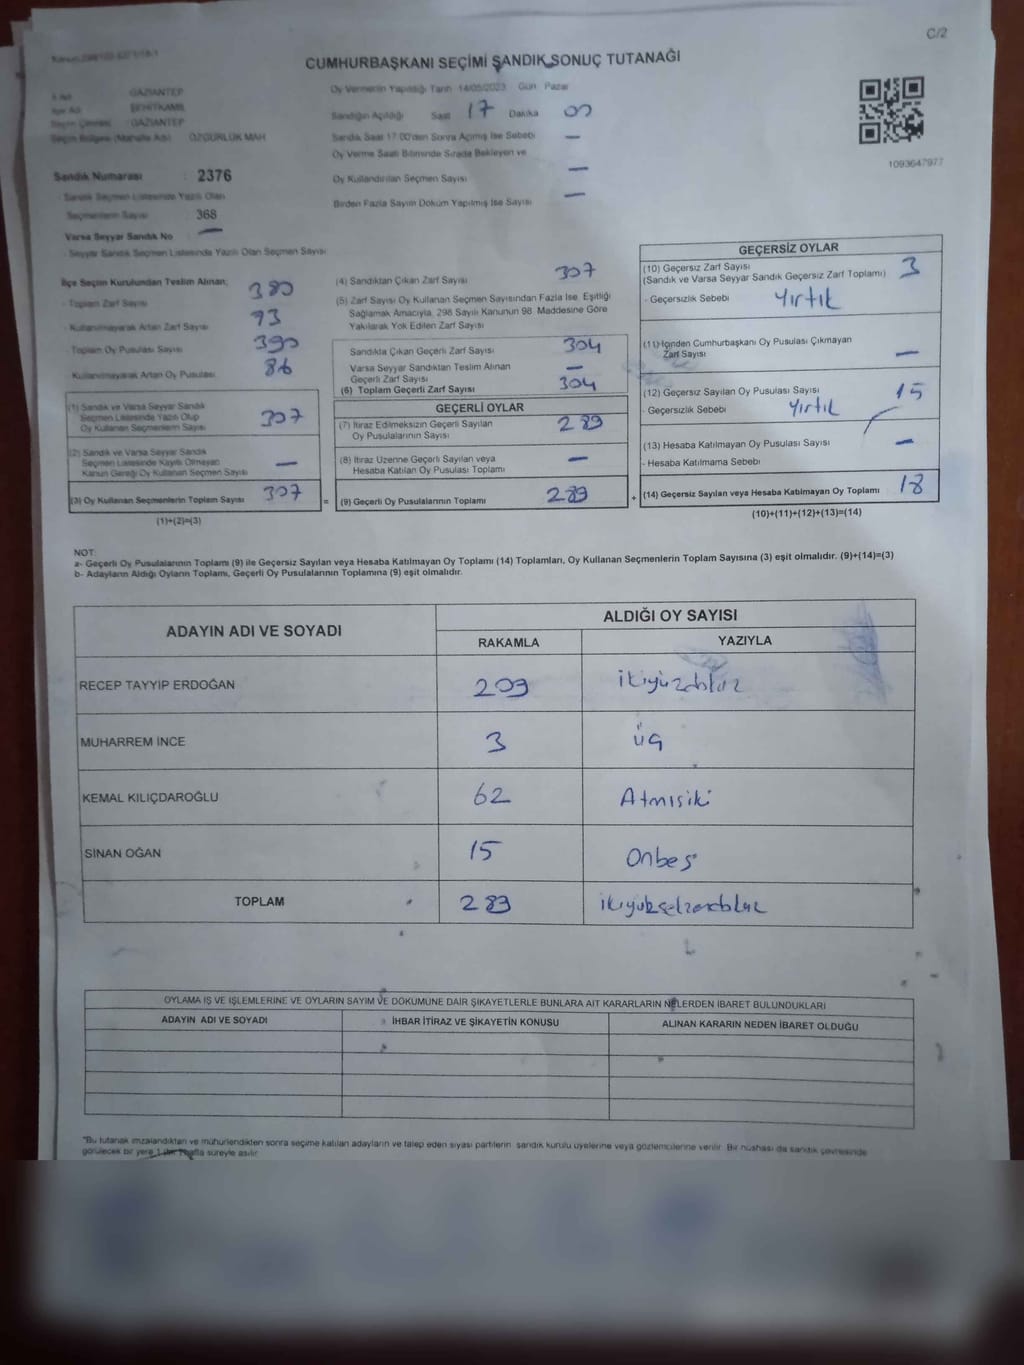 C/2
CUMHURBAŞKANI SEÇİMİ SANDIK SONUÇ TUTANAĞI
GAZİANTEP
ŞEHİTKAMİL
GAZİANTEP
ÖZGÜRLÜK MAH
Oy Vermenin Yapıldığı Tarih 14/05/2023 Gün Pazar
Sandığın Açıldığı Saat 17 Dakika 00
Sandık Saat 17:00'den Sonra Açılmış İse Sebebi —
Oy Verme Saati Bitiminde Sırada Bekleyen ve
Oy Kullandırılan Seçmen Sayısı —
Birden Fazla Sayım Döküm Yapılmış İse Sayısı —
1093647977
Sandık Numarası : 2376
Sandık Seçmen Listesinde Yazılı Olan
Seçmenlerin Sayısı : 368
Varsa Seyyar Sandık No : —
- Seyyar Sandık Seçmen Listesinde Yazılı Olan Seçmen Sayısı
İlçe Seçim Kurulundan Teslim Alınan;
- Toplam Zarf Sayısı 380
- Kullanılmayarak Artan Zarf Sayısı 73
- Toplam Oy Pusulası Sayısı 390
- Kullanılmayarak Artan Oy Pusulası 86
(1) Sandık ve Varsa Seyyar Sandık
Seçmen Listesinde Yazılı Olup
Oy Kullanan Seçmenlerin Sayısı 307
(2) Sandık ve Varsa Seyyar Sandık
Seçmen Listesinde Kayıtlı Olmayan
Kanun Gereği Oy Kullanan Seçmen Sayısı —
(3) Oy Kullanan Seçmenlerin Toplam Sayısı 307 =
(1)+(2)=(3)
(4) Sandıktan Çıkan Zarf Sayısı 307
(5) Zarf Sayısı Oy Kullanan Seçmen Sayısından Fazla İse, Eşitliği
Sağlamak Amacıyla, 298 Sayılı Kanunun 98. Maddesine Göre
Yakılarak Yok Edilen Zarf Sayısı
Sandıkta Çıkan Geçerli Zarf Sayısı 304
Varsa Seyyar Sandıktan Teslim Alınan
Geçerli Zarf Sayısı —
(6) Toplam Geçerli Zarf Sayısı 304
GEÇERLİ OYLAR
(7) İtiraz Edilmeksizin Geçerli Sayılan
Oy Pusulalarının Sayısı 289
(8) İtiraz Üzerine Geçerli Sayılan veya
Hesaba Katılan Oy Pusulası Toplamı —
(9) Geçerli Oy Pusulalarının Toplamı 289 +
GEÇERSİZ OYLAR
(10) Geçersiz Zarf Sayısı
(Sandık ve Varsa Seyyar Sandık Geçersiz Zarf Toplamı) 3
- Geçersizlik Sebebi Yırtık
(11) İçinden Cumhurbaşkanı Oy Pusulası Çıkmayan
Zarf Sayısı —
(12) Geçersiz Sayılan Oy Pusulası Sayısı 15
- Geçersizlik Sebebi Yırtık
(13) Hesaba Katılmayan Oy Pusulası Sayısı —
- Hesaba Katılmama Sebebi
(14) Geçersiz Sayılan veya Hesaba Katılmayan Oy Toplamı 18
(10)+(11)+(12)+(13)=(14)
NOT:
a- Geçerli Oy Pusulalarının Toplamı (9) ile Geçersiz Sayılan veya Hesaba Katılmayan Oy Toplamı (14) Toplamları, Oy Kullanan Seçmenlerin Toplam Sayısına (3) eşit olmalıdır. (9)+(14)=(3)
b- Adayların Aldığı Oyların Toplamı, Geçerli Oy Pusulalarının Toplamına (9) eşit olmalıdır.
ADAYIN ADI VE SOYADI
ALDIĞI OY SAYISI
RAKAMLA YAZIYLA
RECEP TAYYİP ERDOĞAN 209 ikiyüzdokuz
MUHARREM İNCE 3 üç
KEMAL KILIÇDAROĞLU 62 Atmışiki
SİNAN OĞAN 15 Onbeş
TOPLAM 289 ikiyükselzendokuz
OYLAMA İŞ VE İŞLEMLERİNE VE OYLARIN SAYIM VE DÖKÜMÜNE DAİR ŞİKAYETLERLE BUNLARA AİT KARARLARIN NELERDEN İBARET BULUNDUKLARI
ADAYIN ADI VE SOYADI İHBAR İTİRAZ VE ŞİKAYETİN KONUSU ALINAN KARARIN NEDEN İBARET OLDUĞU
*Bu tutanak imzalandıktan ve mühürlendikten sonra seçime katılan adayların ve talep eden siyasi partilerin sandık kurulu üyelerine veya gözlemcilerine verilir. Bir nüshası da sandık çevresinde
görülecek bir yere 1 (bir) hafta süreyle asılır.